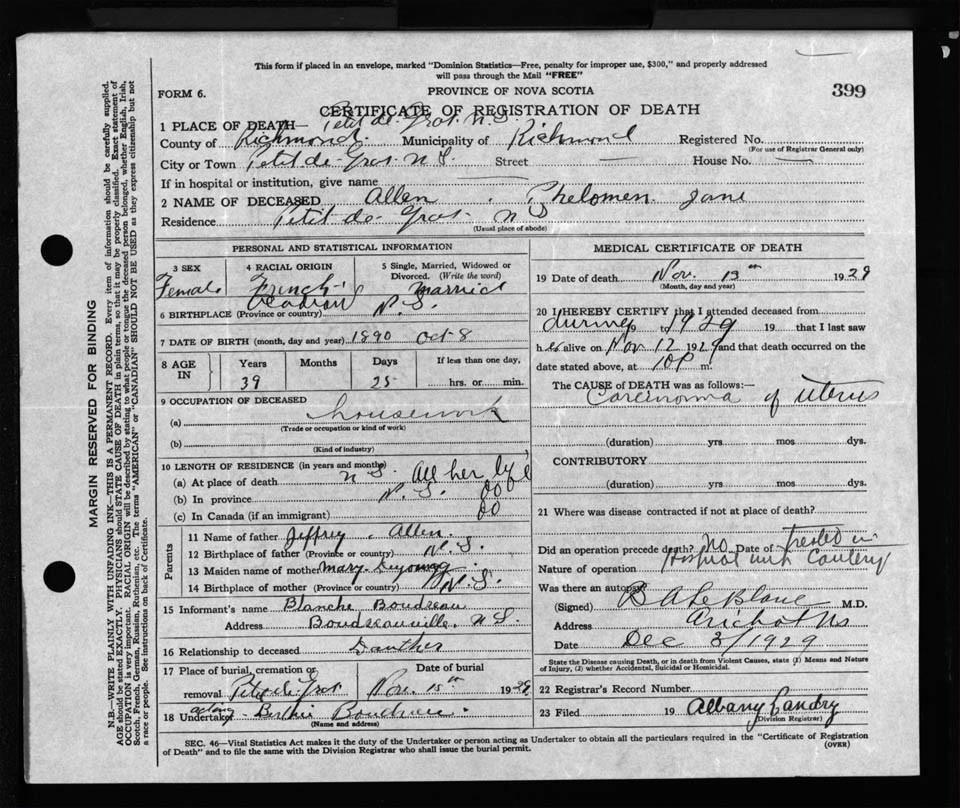 This form if placed in an envelope, marked "Dominion Statistics—Free, penalty for improper use, $300," and properly addressed
will pass through the Mail "FREE"
FORM 6.
PROVINCE OF NOVA SCOTIA
399
CERTIFICATE OF REGISTRATION OF DEATH
1 PLACE OF DEATH— Petit de Grat. N.S.
County of Richmond. Municipality of Richmond Registered No.
(For use of Registrar General only)
City or Town Petit de Grat N S. Street — House No. —
If in hospital or institution, give name —
2 NAME OF DECEASED Allen. Phelomen. Jane
Residence Petit de Grat. N S
(Usual place of abode)
PERSONAL AND STATISTICAL INFORMATION
3 SEX
Female
4 RACIAL ORIGIN
French
5 Single, Married, Widowed or
Divorced. (Write the word)
Married
6 BIRTHPLACE (Province or country) N.S.
7 DATE OF BIRTH (month, day and year) 1890 Oct 8
8 AGE
IN
Years Months Days If less than one day,
39 25 hrs. or min.
9 OCCUPATION OF DECEASED
(a) housework
(Trade or occupation or kind of work)
(b)
(Kind of industry)
10 LENGTH OF RESIDENCE (in years and months)
(a) At place of death N S. All her life
(b) In province N. S. do
(c) In Canada (if an immigrant) do
Parents
11 Name of father Jeffrey. Allen.
12 Birthplace of father (Province or country) N.S.
13 Maiden name of mother Mary Deyoung
14 Birthplace of mother (Province or country) N.S.
15 Informant's name Blanche Boudreau
Address Boudreauville, N S.
16 Relationship to deceased Daughter
17 Place of burial, cremation or
removal Petit de Grat
Date of burial
Nov. 15th 1929
18 Undertaker acting
(Name and address)
MEDICAL CERTIFICATE OF DEATH
19 Date of death Nov. 13th 1929
(Month, day and year)
20 I HEREBY CERTIFY that I attended deceased from
during 1929 19 that I last saw
her alive on Nov 12 1929 and that death occurred on the
date stated above, at 10 P m.
The CAUSE of DEATH was as follows:—
Carcinoma of uterus
(duration) yrs. mos dys.
CONTRIBUTORY
(duration) yrs. mos dys.
21 Where was disease contracted if not at place of death?
Did an operation precede death? No Date of Treated in
Nature of operation Hospital with Cautery
Was there an autopsy?
(Signed) B A LeBlanc M.D.
Address Arichat NS
Date Dec 3/1929
State the Disease causing Death, or in death from Violent Causes, state (1) Means and Nature
of Injury, (2) whether Accidental, Suicidal or Homicidal.
22 Registrar's Record Number
23 Filed 19 Albany Landry
(Division Registrar)
SEC. 46—Vital Statistics Act makes it the duty of the Undertaker or person acting as Undertaker to obtain all the particulars required in the "Certificate of Registration
of Death" and to file the same with the Division Registrar who shall issue the burial permit.
(OVER)
MARGIN RESERVED FOR BINDING
N.B.—WRITE PLAINLY WITH UNFADING INK—THIS IS A PERMANENT RECORD. Every item of information should be carefully supplied.
AGE should be stated EXACTLY. PHYSICIANS should STATE CAUSE OF DEATH in plain terms, so that it may be properly classified. Exact statement of
OCCUPATION is very important. RACIAL ORIGIN will be described by stating to what people or tongue the deceased person belonged, whether English, Irish,
Scotch, French, German, Russian, Ruthenian, etc. The terms "AMERICAN" or "CANADIAN" SHOULD NOT BE USED as they express citizenship but not
a race or people. See instructions on back of Certificate.